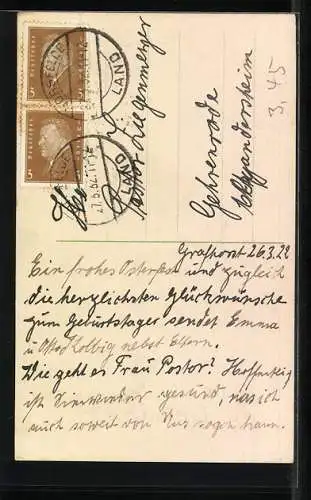 3
3
LAND
LAND
27.3.32
3,45
Pastor Ziegenmeyer
Gehrenrode
b/Gandersheim
Grafhorst 26.3.32
Ein frohes Osterfest und zugleich
die herzlichsten Glückwünsche
zum Geburtstage sendet Emma
u Otto Kolbig nebst Eltern.
Wie geht es Frau Pastor? Hoffentlich
ist wieder gesund, was ich
auch soweit von uns sagen kann.